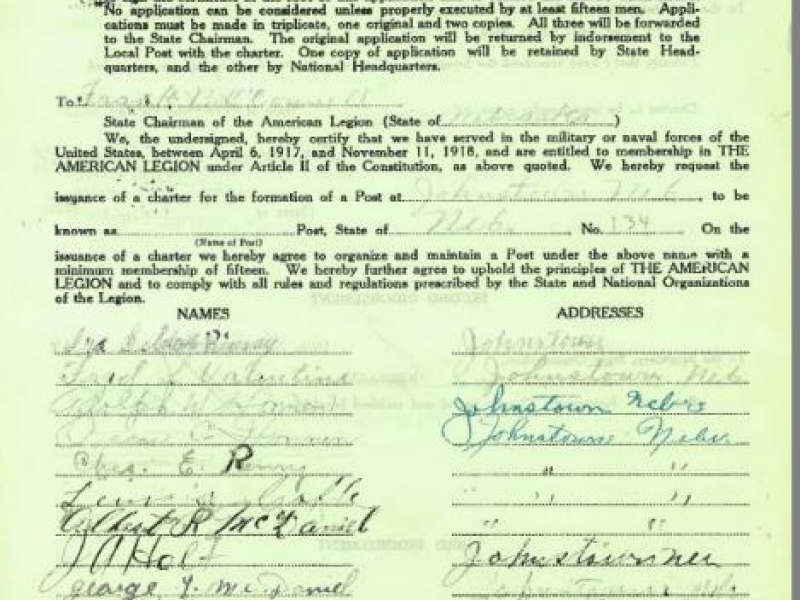 No application can be considered unless properly executed by at least fifteen men. Appli-
cations must be made in triplicate, one original and two copies. All three will be forwarded
to the State Chairman. The original application will be returned by indorsement to the
Local Post with the charter. One copy of application will be retained by State Head-
quarters, and the other by National Headquarters.
To: Frank
State Chairman of the American Legion (State of )
We, the undersigned, hereby certify that we have served in the military or naval forces of the
United States, between April 6, 1917, and November 11, 1918, and are entitled to membership in THE
AMERICAN LEGION under Article II of the Constitution, as above quoted. We hereby request the
issuance of a charter for the formation of a Post at Johnstown Neb , to be
known as Post, State of Neb. , No. 134 On the
(Name of Post)
issuance of a charter we hereby agree to organize and maintain a Post under the above name with a
minimum membership of fifteen. We hereby further agree to uphold the principles of THE AMERICAN
LEGION and to comply with all rules and regulations prescribed by the State and National Organizations
of the Legion.
NAMES ADDRESSES
Johnstown
Fred Valentine Johnstown Neb
Ralph W Johnstown Nebr
Johnstown Nebr
Chas. E. R " "
" "
Albert R McDaniel " "
J A Holt Johnstown neb
george Y. McDaniel